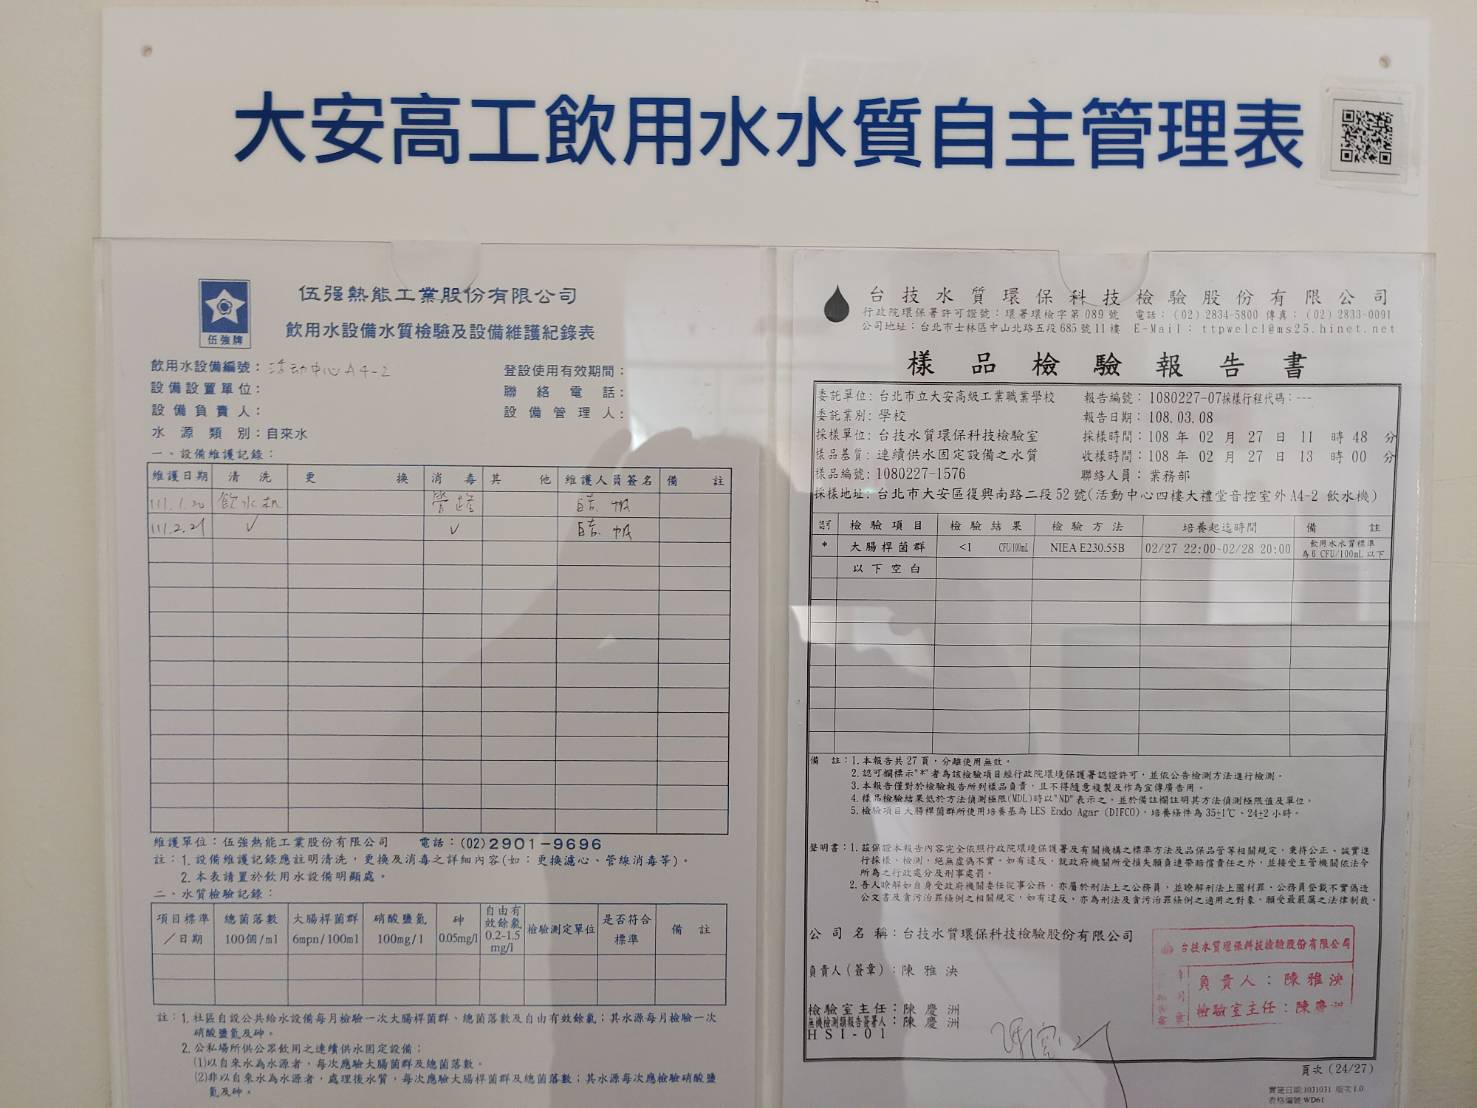 大安高工飲用水水質自主管理表
伍強牌
伍强熱能工業股份有限公司
飲用水設備水質檢驗及設備維護紀錄表
飲用水設備編號：活动中心A4-2
設備設置單位：
設備負責人：
水源類別：自來水
登設使用有效期間：
聯絡電話：
設備管理人：
一、設備維護記錄：
維護日期 清洗 更換 消毒 其他 維護人員簽名 備註
111.1.20 飲水机 管路
111.2.21 ✓ ✓
維護單位：伍強熱能工業股份有限公司 電話：(02)2901-9696
註：1.設備維護記錄應註明清洗，更換及消毒之詳細內容(如：更換濾心、管線消毒等)。
2.本表請置於飲用水設備明顯處。
二、水質檢驗記錄：
項目標準／日期 總菌落數100個/ml 大腸桿菌群6mpn/100ml 硝酸鹽氮100mg/l 砷0.05mg/l 自由有效餘氯0.2-1.5mg/l 檢驗測定單位 是否符合標準 備註
註：1.社區自設公共給水設備每月檢驗一次大腸桿菌群、總菌落數及自由有效餘氯；其水源每月檢驗一次
硝酸鹽氮及砷。
2.公私場所供公眾飲用之連續供水固定設備：
(1)以自來水為水源者，每次應驗大腸菌群及總菌落數。
(2)非以自來水為水源者，處理後水質，每次應驗大腸桿菌群及總菌落數；其水源每次應檢驗硝酸鹽
氮及砷。
台技水質環保科技檢驗股份有限公司
行政院環保署許可證號：環署環檢字第089號 電話：(02)2834-5800 傳真：(02)2833-0091
公司地址：台北市士林區中山北路五段685號11樓 E-Mail：ttpwelcl@ms25.hinet.net
樣品檢驗報告書
委託單位：台北市立大安高級工業職業學校 報告編號：1080227-07採樣行程代碼：---
委託業別：學校 報告日期：108.03.08
採樣單位：台技水質環保科技檢驗室 採樣時間：108年02月27日11時48分
樣品基質：連續供水固定設備之水質 收樣時間：108年02月27日13時00分
樣品編號：1080227-1576 聯絡人員：業務部
採樣地址：台北市大安區復興南路二段52號(活動中心四樓大禮堂音控室外A4-2 飲水機)
認可 檢驗項目 檢驗結果 檢驗方法 培養起迄時間 備註
* 大腸桿菌群 <1 CFU/100mL NIEA E230.55B 02/27 22:00~02/28 20:00 飲用水水質標準為6 CFU/100mL以下
以下空白
備註：1.本報告共27頁，分離使用無效。
2.認可欄標示"*"者為該檢驗項目經行政院環境保護署認證許可，並依公告檢測方法進行檢測。
3.本報告僅對於檢驗報告所列樣品負責，且不得隨意複製及作為宣傳廣告用。
4.樣品檢驗結果低於方法偵測極限(MDL)時以"ND"表示之，並於備註欄註明其方法偵測極限值及單位。
5.檢驗項目大腸桿菌群所使用培養基為LES Endo Agar (DIFCO)，培養條件為35±1℃、24±2小時。
聲明書：1.茲保證本報告內容完全依照行政院環境保護署及有關機構之標準方法及品保品管等相關規定，秉持公正、誠實進
行採樣、檢測，絕無虛偽不實，如有違反，就政府機關所受損失願負連帶賠償責任之外，並接受主管機關依法令
所為之行政處分及刑事處罰。
2.吾人瞭解如自身受政府機關委任從事公務，亦屬於刑法上之公務員，並瞭解刑法上圖利罪、公務員登載不實偽造
公文書及貪污治罪條例之相關規定，如有違反，亦為刑法及貪污治罪條例之適用之對象，願受最嚴厲之法律制裁。
公司名稱：台技水質環保科技檢驗股份有限公司
負責人(簽章)：陳雅泱
檢驗室主任：陳慶洲
無機檢測類報告簽署人：陳慶洲
HSI-01
台技水質環保科技檢驗股份有限公司
負責人：陳雅泱
檢驗室主任：陳慶洲
頁次(24/27)
實施日期:1031031 版次1.0
表格編號:WD61